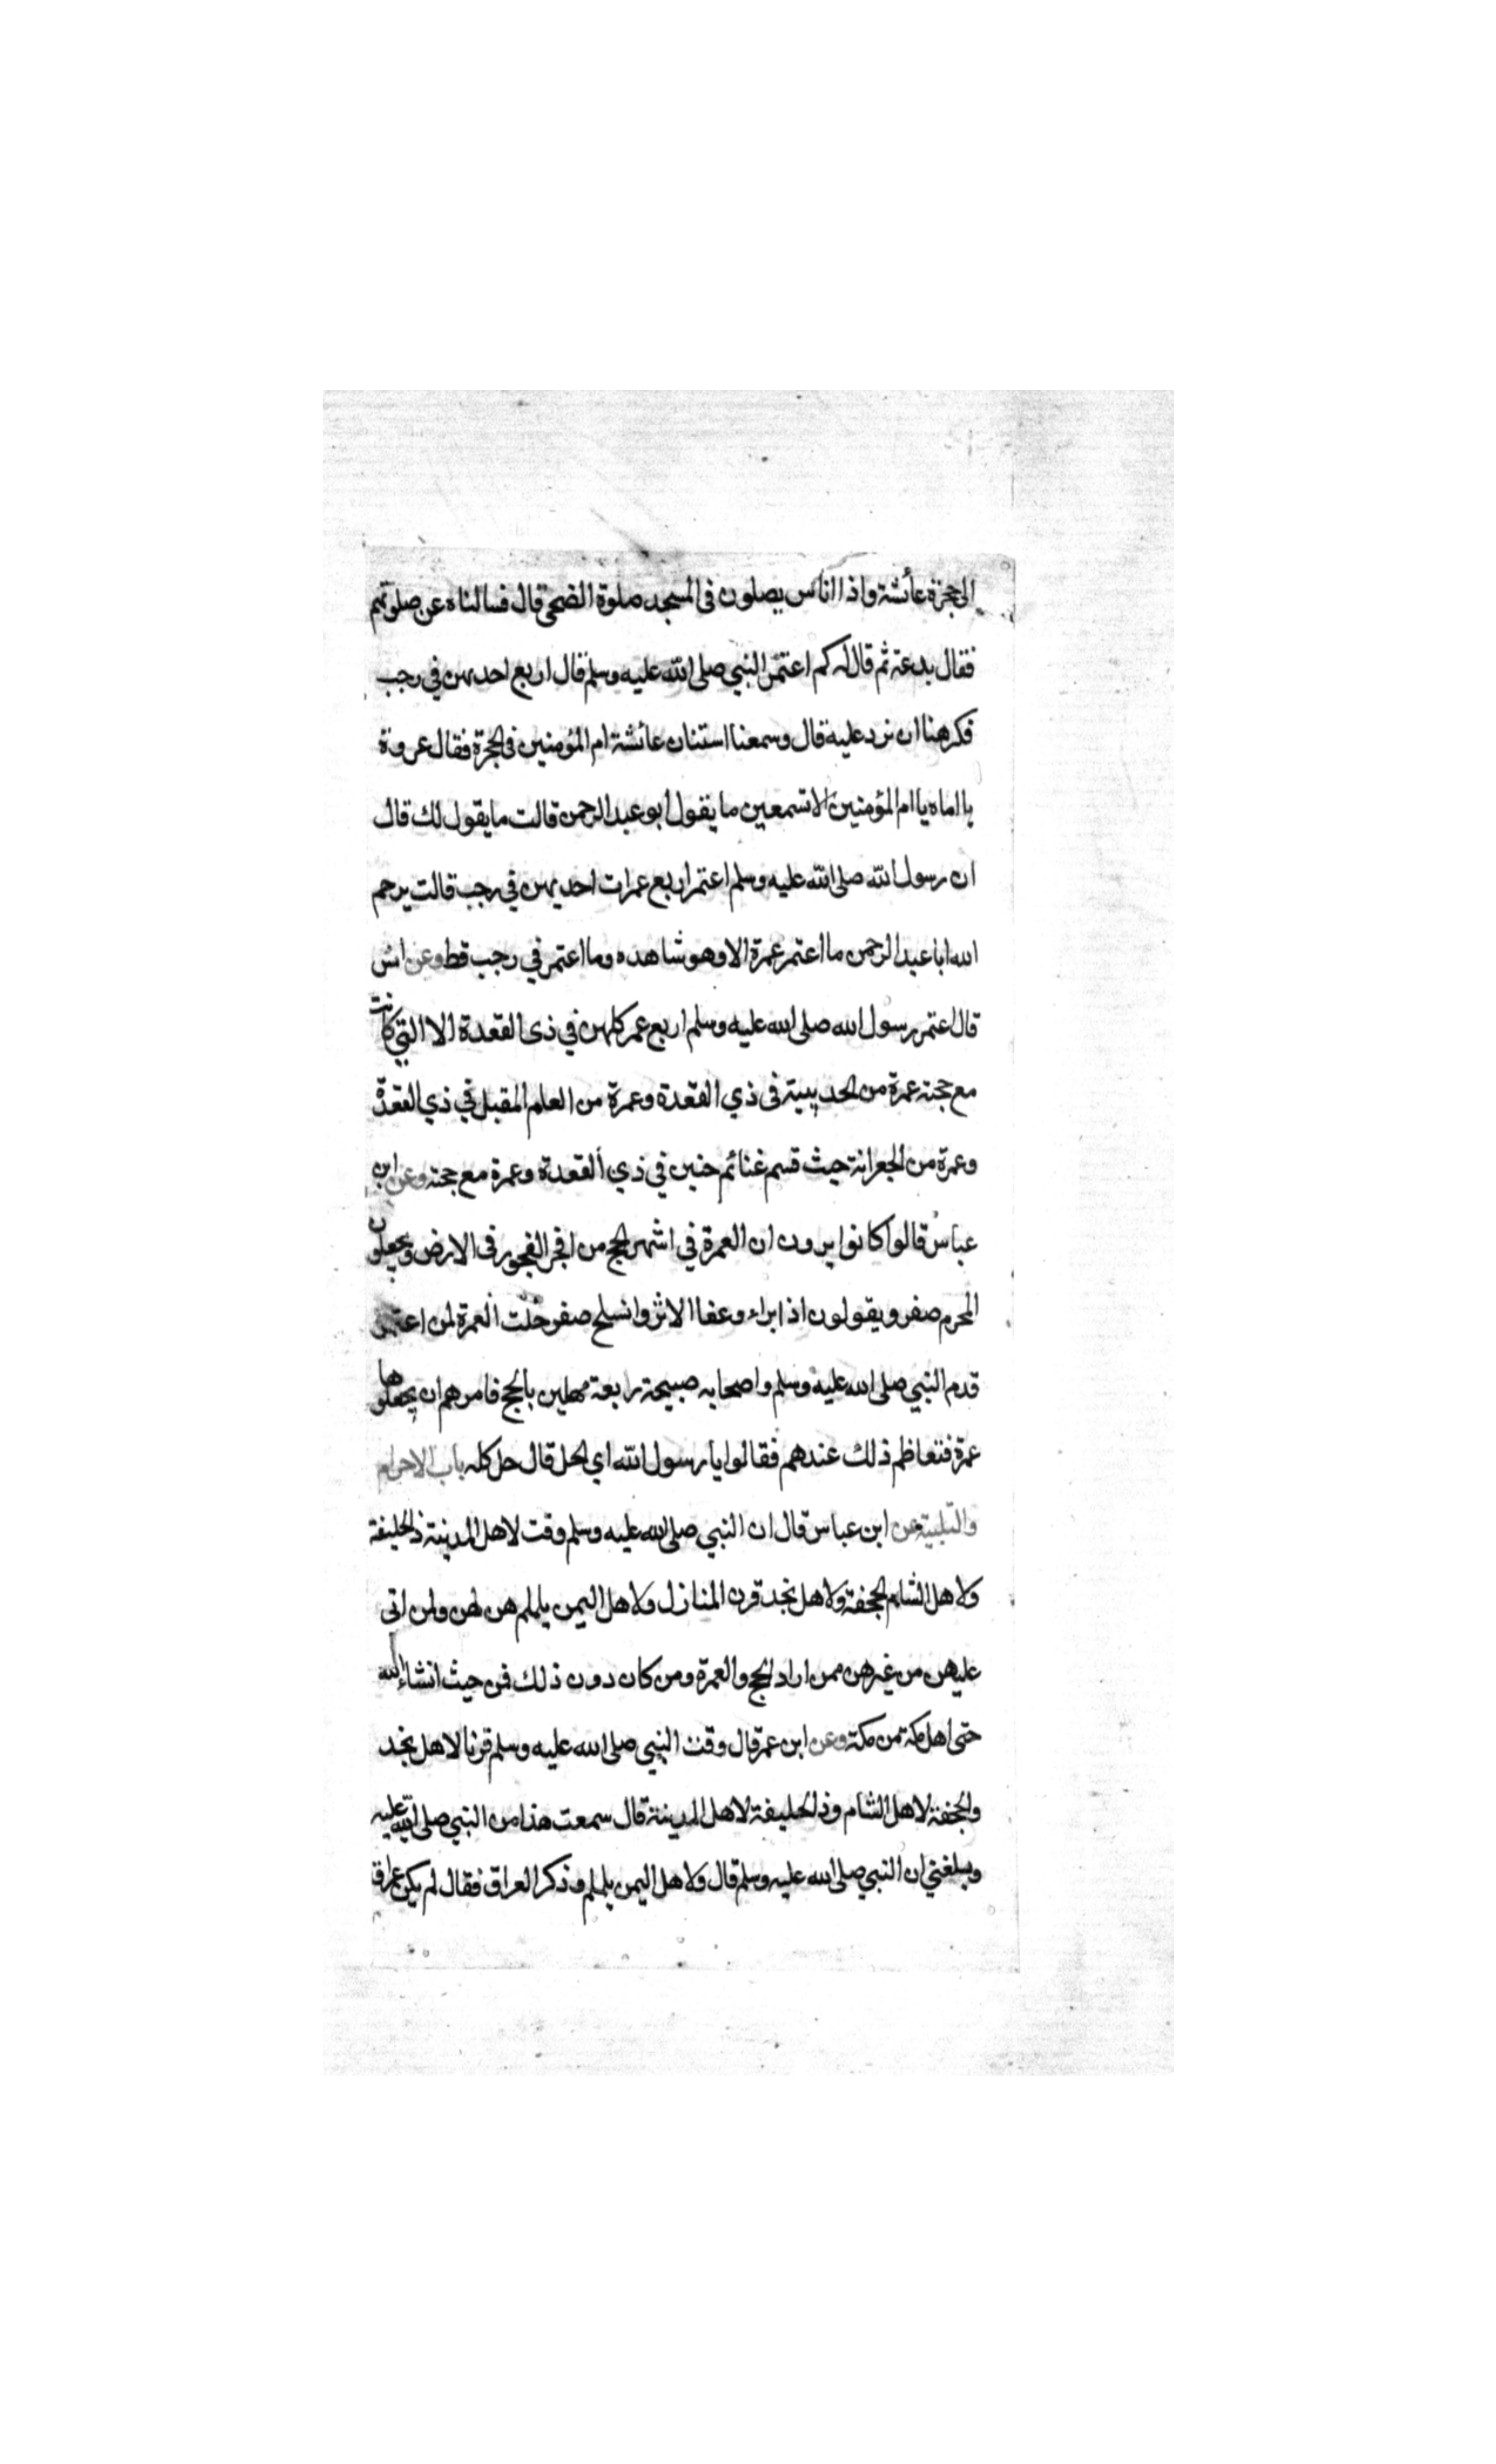 الى حجرة عائشة واذا اناس يصلون فى المسجد صلوة الضحى قال فسالناه عن صلوتهم
فقال بدعة ثم قال له كم اعتمر النبي صلى الله عليه وسلم قال اربع احديهن في رجب
فكرهنا ان نرد عليه قال وسمعنا استنان عائشة ام المؤمنين فى الحجرة فقال عروة
يا اماه يا ام المؤمنين الا تسمعين ما يقول ابو عبد الرحمن قالت ما يقول لك قال
ان رسول الله صلى الله عليه وسلم اعتمر اربع عمرات احديهن في رجب قالت يرحم
الله ابا عبد الرحمن ما اعتمر عمرة الا وهو شاهده وما اعتمر في رجب قط وعن انس
قال اعتمر رسول الله صلى الله عليه وسلم اربع عمر كلهن في ذى القعدة الا التي كانت
مع حجته عمرة من الحديبية فى ذي القعدة وعمرة من العام المقبل في ذي القعدة
وعمرة من الجعرانة حيث قسم غنائم حنين في ذي القعدة وعمرة مع حجته وعن ابن
عباس قالوا كانوا يرون ان العمرة في اشهر الحج من افجر الفجور فى الارض ويجعلون
المحرم صفر ويقولون اذا براء وعفا الاثر وانسلخ صفر حلت العمرة لمن اعتمر
قدم النبي صلى الله عليه وسلم واصحابه صبيحة رابعة مهلين بالحج فامرهم ان يجعلوها
عمرة فتعاظم ذلك عندهم فقالوا يا رسول الله اي الحل قال حل كله باب الاحرام
والتلبية عن ابن عباس قال ان النبي صلى الله عليه وسلم وقت لاهل المدينة ذا الحليفة
ولاهل الشام الجحفة ولاهل نجد قرن المنازل ولاهل اليمن يلملم هن لهن ولمن اتى
عليهن من غيرهن ممن اراد الحج والعمرة ومن كان دون ذلك فمن حيث انشاء الله
حتى اهل مكة من مكة وعن ابن عمر قال وقت النبي صلى الله عليه وسلم قرنا لاهل نجد
والجحفة لاهل الشام وذا الحليفة لاهل المدينة قال سمعت هذا من النبي صلى الله عليه
وبلغني ان النبي صلى الله عليه وسلم قال ولاهل اليمن يلملم وذكر العراق فقال لم يكن عراق